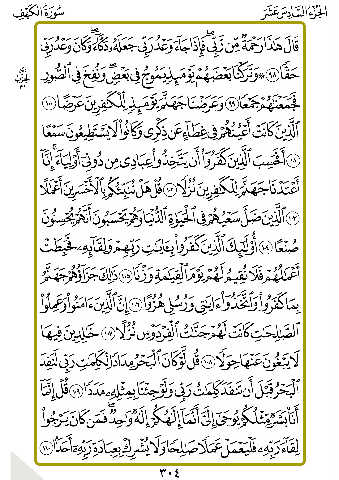 الجزء السادس عشر
سورة الكهف
قَالَ هَٰذَا رَحْمَةٌ مِّن رَّبِّي فَإِذَا جَآءَ وَعْدُ رَبِّي جَعَلَهُۥ دَكَّآءَ وَكَانَ وَعْدُ رَبِّي
حَقًّا ٩٨ وَتَرَكْنَا بَعْضَهُمْ يَوْمَئِذٍ يَمُوجُ فِي بَعْضٍ وَنُفِخَ فِي ٱلصُّورِ
فَجَمَعْنَٰهُمْ جَمْعًا ٩٩ وَعَرَضْنَا جَهَنَّمَ يَوْمَئِذٍ لِّلْكَٰفِرِينَ عَرْضًا ١٠٠
ٱلَّذِينَ كَانَتْ أَعْيُنُهُمْ فِي غِطَآءٍ عَن ذِكْرِي وَكَانُوا۟ لَا يَسْتَطِيعُونَ سَمْعًا
١٠١ أَفَحَسِبَ ٱلَّذِينَ كَفَرُوٓا۟ أَن يَتَّخِذُوا۟ عِبَادِي مِن دُونِيٓ أَوْلِيَآءَ إِنَّآ
أَعْتَدْنَا جَهَنَّمَ لِلْكَٰفِرِينَ نُزُلًا ١٠٢ قُلْ هَلْ نُنَبِّئُكُم بِٱلْأَخْسَرِينَ أَعْمَٰلًا
١٠٣ ٱلَّذِينَ ضَلَّ سَعْيُهُمْ فِي ٱلْحَيَوٰةِ ٱلدُّنْيَا وَهُمْ يَحْسَبُونَ أَنَّهُمْ يُحْسِنُونَ
صُنْعًا ١٠٤ أُو۟لَٰٓئِكَ ٱلَّذِينَ كَفَرُوا۟ بِـَٔايَٰتِ رَبِّهِمْ وَلِقَآئِهِۦ فَحَبِطَتْ
أَعْمَٰلُهُمْ فَلَا نُقِيمُ لَهُمْ يَوْمَ ٱلْقِيَٰمَةِ وَزْنًا ١٠٥ ذَٰلِكَ جَزَآؤُهُمْ جَهَنَّمُ
بِمَا كَفَرُوا۟ وَٱتَّخَذُوٓا۟ ءَايَٰتِي وَرُسُلِي هُزُوًا ١٠٦ إِنَّ ٱلَّذِينَ ءَامَنُوا۟ وَعَمِلُوا۟
ٱلصَّٰلِحَٰتِ كَانَتْ لَهُمْ جَنَّٰتُ ٱلْفِرْدَوْسِ نُزُلًا ١٠٧ خَٰلِدِينَ فِيهَا
لَا يَبْغُونَ عَنْهَا حِوَلًا ١٠٨ قُل لَّوْ كَانَ ٱلْبَحْرُ مِدَادًا لِّكَلِمَٰتِ رَبِّي لَنَفِدَ
ٱلْبَحْرُ قَبْلَ أَن تَنفَدَ كَلِمَٰتُ رَبِّي وَلَوْ جِئْنَا بِمِثْلِهِۦ مَدَدًا ١٠٩ قُلْ إِنَّمَآ
أَنَا۠ بَشَرٌ مِّثْلُكُمْ يُوحَىٰٓ إِلَيَّ أَنَّمَآ إِلَٰهُكُمْ إِلَٰهٌ وَٰحِدٌ فَمَن كَانَ يَرْجُوا۟
لِقَآءَ رَبِّهِۦ فَلْيَعْمَلْ عَمَلًا صَٰلِحًا وَلَا يُشْرِكْ بِعِبَادَةِ رَبِّهِۦٓ أَحَدًۢا ١١٠
٣٠٤